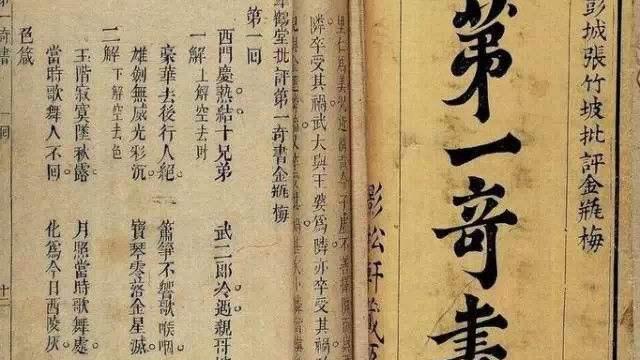 彭城張竹坡批評金瓶梅
第一奇書
影松軒
里仁為美況
隣卒受其禍武大與王婆為隣亦卒受其禍
鶴堂批評第一奇書金瓶梅
第一回
西門慶熱結十兄弟 武二郎冷遇親哥
一解 上解空去財
豪華去後行人絕 簫箏不響歌喉咽
雄劍無威光彩沉 寶琴零落金星滅
二解 下解空去色
玉階寂寞墜秋露 月照當時歌舞處
當時歌舞人不回 化為今日西陵灰
色箴
第一奇書 一回 十二